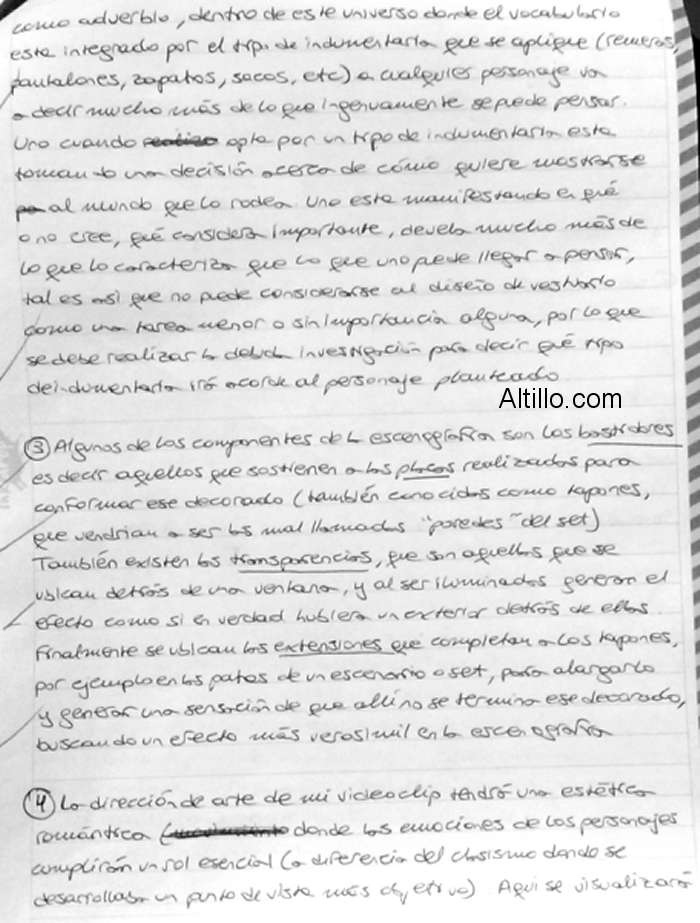 como adverbio, dentro de este universo donde el vocabulario
esta integrado por el tipo de indumentaria que se aplique (remeras,
pantalones, zapatos, sacos, etc) a cualquier personaje va
a decir mucho más de lo que ingenuamente se puede pensar.
Uno cuando realiza opta por un tipo de indumentaria esta
tomando una decisión acerca de cómo quiere mostrarse
al mundo que lo rodea. Uno esta manifestando en qué
o no cree, qué considera importante, devela mucho más de
lo que lo caracteriza que lo que uno puede llegar a pensar,
tal es así que no puede considerarse al diseño de vestuario
como una tarea menor o sin importancia alguna, por lo que
se debe realizar la debida investigación para decir qué tipo
de indumentaria irá acorde al personaje planteado
Altillo.com
③ Algunos de los componentes de la escenografía son los bastidores
es decir aquellos que sostienen a las placas realizadas para
conformar ese decorado (también conocidos como tapones,
que vendrían a ser las mal llamadas "paredes" del set)
También existen las transparencias, que son aquellos que se
ubican detrás de una ventana, y al ser iluminados generan el
efecto como si en verdad hubiera un exterior detrás de ellas.
Finalmente se ubican las extensiones que completan a los tapones,
por ejemplo en las patas de un escenario o set, para alargarlo
y generar una sensación de que allí no se termina ese decorado,
buscando un efecto más verosímil en la escenografía
④ La dirección de arte de mi videoclip tendrá una estética
romántica (donde las emociones de los personajes
cumplirán un rol esencial (a diferencia del clasismo donde se
desarrollaba un punto de vista más objetivo) Aquí se visualizará